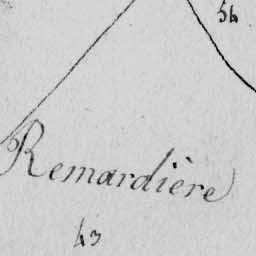 54
Remardière
43